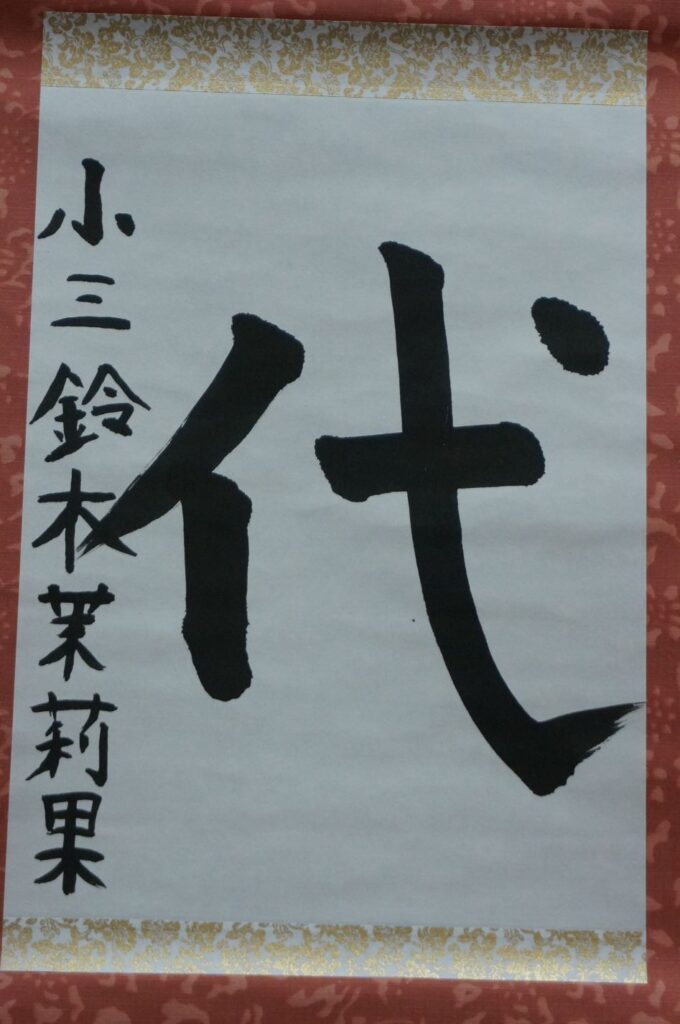 代
小三鈴木茉莉果